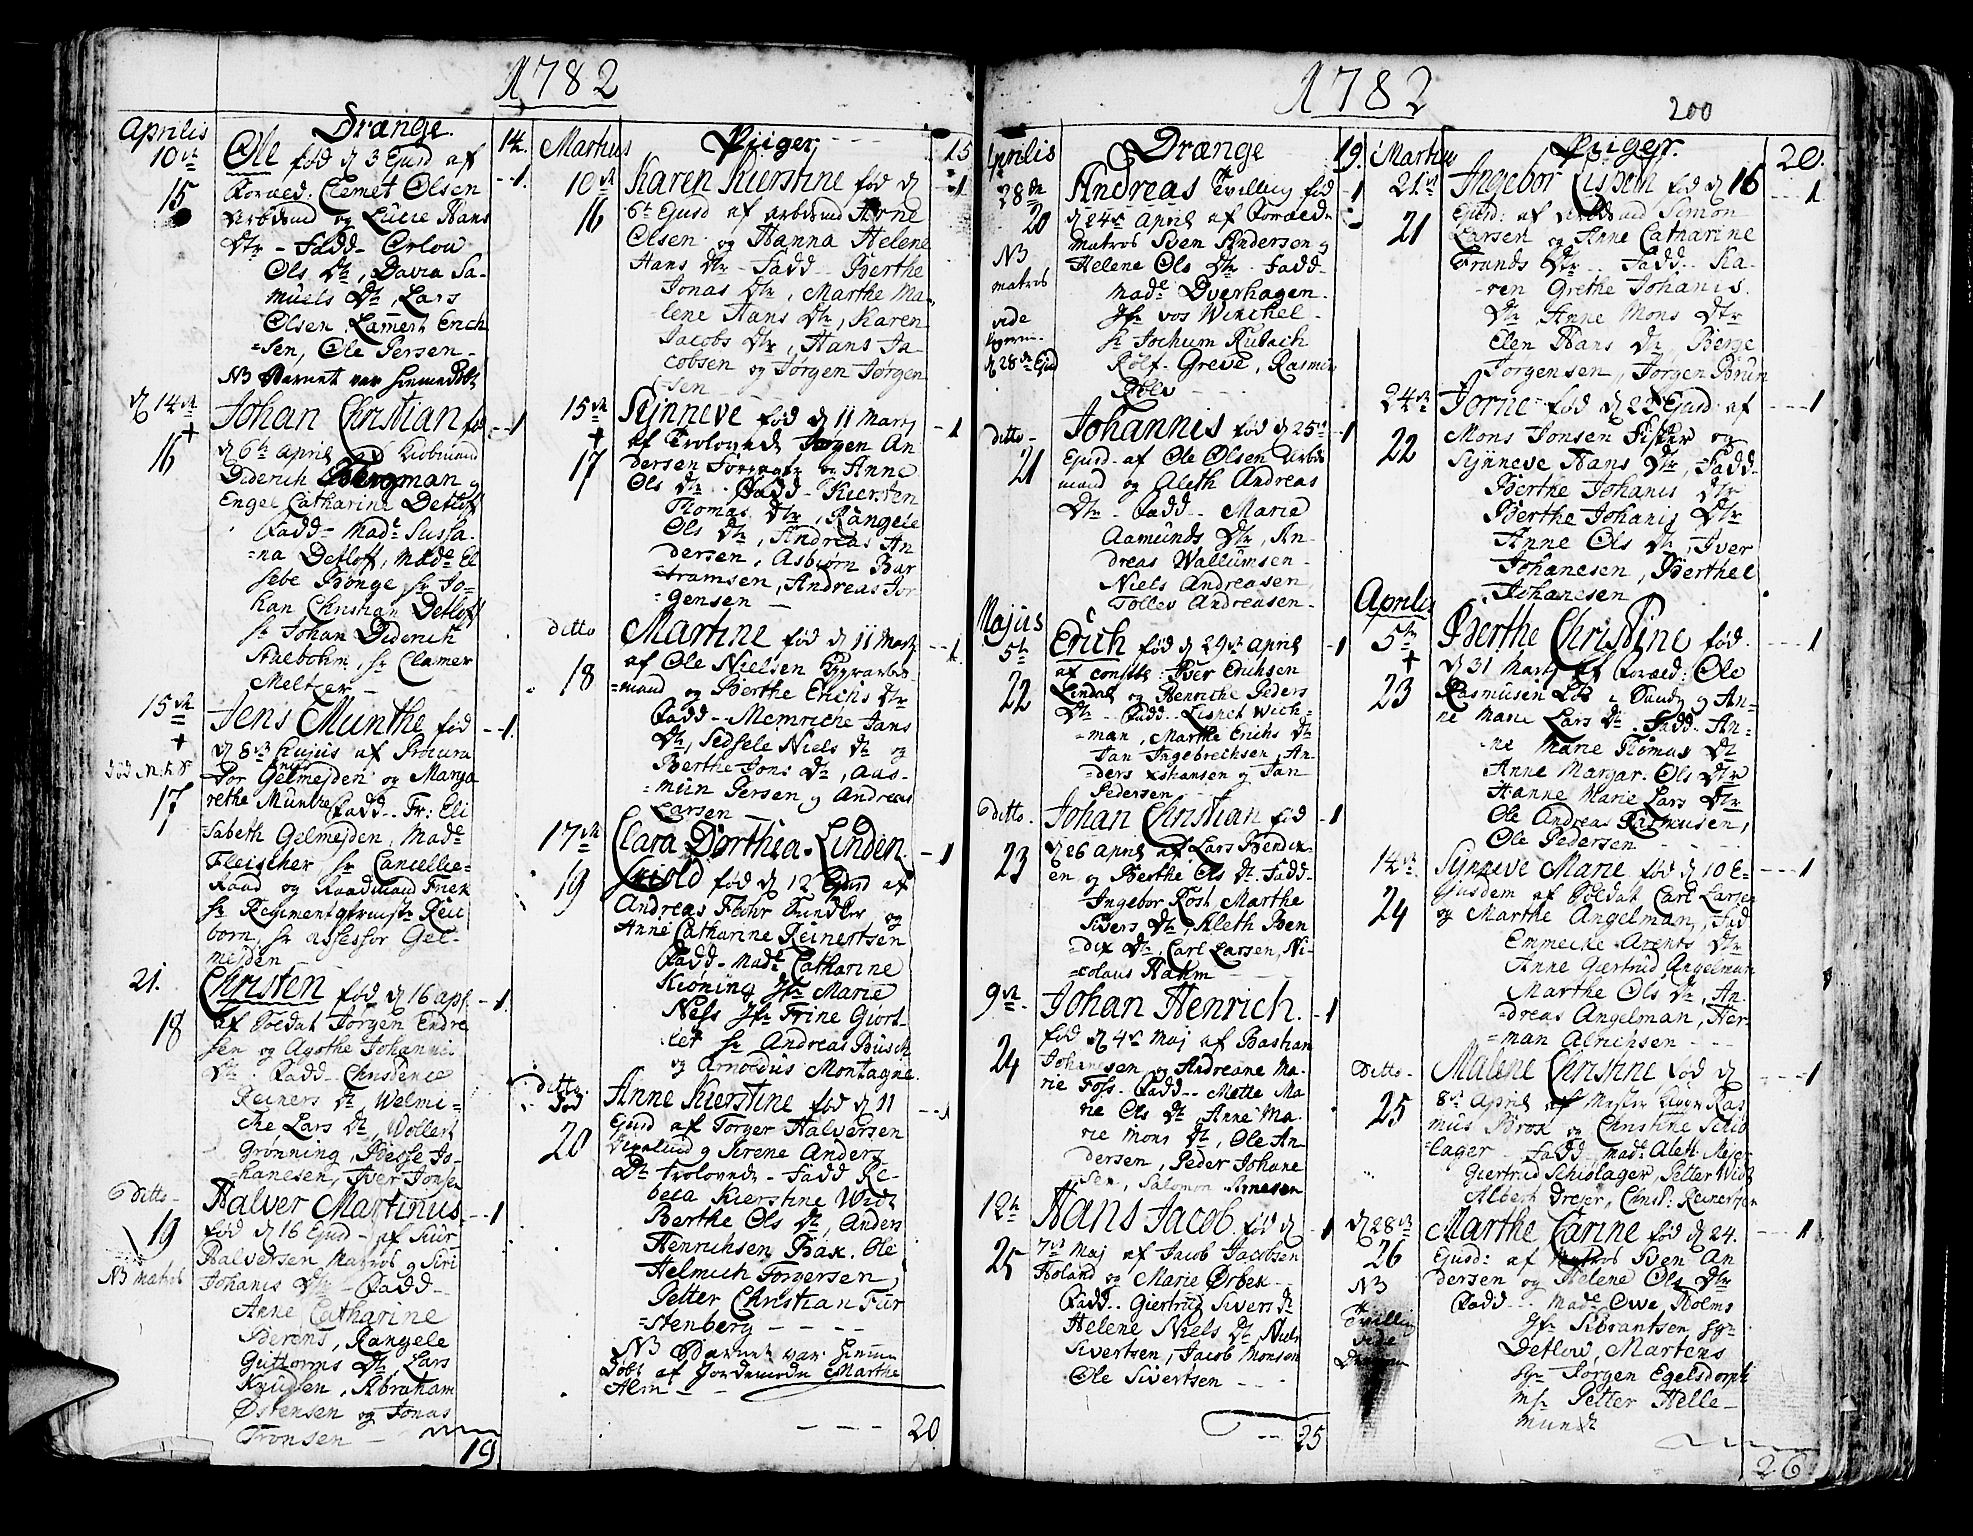 1782
Drænge.
14.
Aprilis
10de
15
Ole fød d 3 Ejusd af
Foræd: Clemet Olsen
Arbdmd og Lucie Hans
Dtr - Fadd - Orlou
Ols Dtr, David Sa-
muels Dtr, Lars
Olsen, Lamert Erich
=sen, Ole Persen -
NB Barnet var hiemedøbt
-1.
d 14de
+
16
Johan Christian fød
d 6te April af Kiøbmand
Diderich Bergman og
Engel Catharine Detloff
Fadd - Made Sussa-
=na Detloff, Made El
sebe Ronge, Sr Jo-
han Christian Detloff
Sr Johan Diderich
Stalbohm, Sr Clamer
Meltzer -
-1
15de
+
17
Jens Munthe fød
d 8de hujus af Procura
tor Gelmejden og Marga
rethe Munthe Fadd - Fr: Eli
sabeth Gelmejden, Made
Fleischer Sr Cancellie-
Raad og Raadmand Friek
Sr Regimentsqvart: Rei
born, Sr assessor Gel-
mejden
-1.
21.
18
Christen fød d 16 apr.
af Soldat Jørgen Endre
sen og Agathe Johannis
Dtr - Fadd - Christence
Reiners Dtr, Welmi=
che Lars Dtr, Wollert
Grønning, Besse Jo-
=hanesen, Iver Jonsen
-1.
Ditto -
19
NB Matros
Halver Martinus
fød d 16 Ejusd - af
Halversen Matros og Siri
Johanis Dtr - Fadd -
Anne Catharine
Berens, Rangele
Guttorms Dtr, Lars
Knudsen, Abraham
Østensen og Jonas
Tronsen -
-1
19
Piiger
15
Martius
10de
16
Karen Kierstine fød d
6te Ejusd af Arbdmd Arne
Olsen og Hanna Helene
Hans Dtr - Fadd - Berthe
Jonas Dtr, Marthe Ma-
lene Hans Dtr, Karen
Jacobs Dtr, Hans Ja-
cobsen og Jørgen Jørgen
-sen -
-1
15de
+
17
Synneve fød d 11 Marty
af Trolovede Jørgen An
dersen og Anne
Ols Dtr - Fadd - Kiersten
Thomas Dtr, Rangele
Ols Dtr, Andreas An
dersen, Asbiørn Bar
=tramsen, Andreas Jør
=gensen -
-1
ditto
18
Martine fød d 11 Marty
af Ole Nielsen Bygarbei-
=mand og Berthe Erichs Dtr
Fadd - Memriche Jans
Dtr, Sidsele Niels Dtr og
Berthe Jons Dtr, Aas-
mun Persen og Andreas
Larsen -
-1
17de
19
Clara Dorthea Linden
skiold fød d 12 Ejusd af
Andreas Flohr Kundler og
Anne Catharine Reinertsen
Fadd - Made Catharine
Kiøning Jfr Marie
Ness Jfr Trine Giort
let Sr Andreas Busch
og Arnoldus Montagne.
-1
ditto
20
Anne Kierstine fød d 11
Ejusd af Torger Halversen
og Sirene Anders
Dtr trolovede - Fadd Re-
beca Kierstine Widt
Berthe Ols Dtr, Anders
Henrichsen Bak. Ole
Helmich Torgersen,
Petter Christian Für
=stenberg - - - -
NB Barnet var hiemme
døbt af Jordemodr Marthe
Alm -
-1
20
1782
200
Drænge
19.
Aprilis
28de
20
NB
matros
vide
d 28de Ejusd
Andreas Tvilling fød
d 24de April af Foræde
matros Sven Anderson og
Helene Ols Dtr - Fadd -
Made Overhagen.
Jfr vos Winchel -
Sr Jochum Rubach
Rolf Greve, Rasmus
-1
ditto -
21
Johannis fød d 25de
Ejusd - af Ole Olsen Arbds
mand og Aleth Andreas
Dtr - Fadd - Marie
Aamunds Dtr, An-
dreas Wallumsen -
Niels Andreasen
Tollev Andreasen -
-1
Majus
5te
22
Erich fød d 29de April
af constbl: Iver Erichsen
Lindal og Henriche Peders
Dtr - Fadd - Lisbet Wich-
=man, Marthe Erichs Dtr
Jan Ingebrechtsen, An-
=ders Johansen og Jan
Pedersen -
-1
Ditto.
23
Johan Christian fød
d 26 April af Lars Bendix
en og Berthe Ols Dtr. Fadd -
Ingebor Rost Marthe
Sivers Dtr, Aleth Ben
=dix Dtr, Carl Larsen, Ni-
=colaus Rahm -
-1
9de
24
Johan Henrich.
fød d 4de Maj af Bastian
Johansen og Andreane Ma-
rie Foss. Fadd - Mette Ma
rie Ols Dtr, Anne Ma-
rie Mons Dtr, Ole An-
dersen, Peder Johane
sen, Salomon Arnesen
-1
12te
25
Hans Jacob fød d
7de Maj af Jacob Jacobsen
Holand og Marie Ørbek -
Fadd. Giertrud Sivers Dtr
Helene Niels Dtr, Niels
Sivertsen, Jacob Monsen
Ole Sivertsen - -
-1
25
Piiger.
20.
Martius
21de
21
Ingebor Lisbeth fød d 16
Ejusd: af Arbdmd Simon
Larsen og Anne Catharine
Trunds Dtr - Fadd - Ka-
ren Grethe Johanis.
Dtr, Anne Mons Dtr
Elen Hans Dtr, Berge
Jørgensen, Jørgen Brun
-1
24de
22
Jorne fød d 22 Ejusd af
Mons Jonsen Fisker og
Synneve Hans Dtr, Fadd -
Berthe Johanis Dtr
Berthe Johanis Dtr
Anne Ols Dtr, Iver
Johanesen, Berthel
Johanesen
-1
Aprilis
5te
+
23
Berthe Christine fød
d 31 Marty af Foræd: Ole
Rasmusen og An-
ne Marie Lars Dtr. Fadd. An-
ne Marie Thomas Dtr
Anne Margar. Ols Dtr
Hanne Marie Lars Dtr
Ole Andreas Rasmusen,
Ole Pedersen -
-1
14de
24
Synneve Marie fød d 10 E-
jusdem af Soldat Carl Larsen
og Marthe Angelman, Fad
Emmecke Arents Dtr
Anne Giertrud Angelman
Marthe Ols Dtr, An-
=dreas Angelman, Her-
=man Alrichsen -
-1
Ditto -
25
Malene Christine fød d
8de April af Mester Ras
mus Brok og Christine Schiø
=lager - Fadd made Aleth Mejer
Giertrud Schiølager, Petter Widt
Albert Drejer, Const: Reinertsen
-1
d 28de
26
NB
Tvilling
vide
Marthe Carine fød d 24.
Ejusd: af Matros Sven An
dersen og Helene Ols Dtr
Fadd - Made Owe Holms
Jfr Sibrantsen Sr
Detlow Martens
Sr Jørgen Egelsdorph
msr Petter Helle-
mundt
-1
26